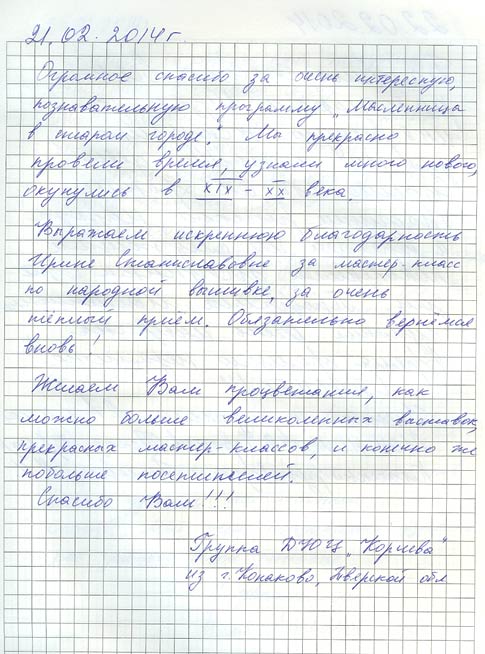 21.02.2014 г.
Огромное спасибо за очень интересную,
познавательную программу „Масленница
в старом городе". Мы прекрасно
провели время, узнали много нового,
окунулись в XIX - XX века.
Выражаем искреннюю благодарность
Ирине Станиславовне за мастер-класс
по народной вышивке, за очень
тёплый прием. Обязательно вернёмся
вновь!
Желаем Вам процветания, как
можно больше великолепных выставок,
прекрасных мастер-классов, и конечно же
побольше посетителей.
Спасибо Вам!!!
Группа ДЮЦ „Корчева"
из г. Конаково, Тверской обл